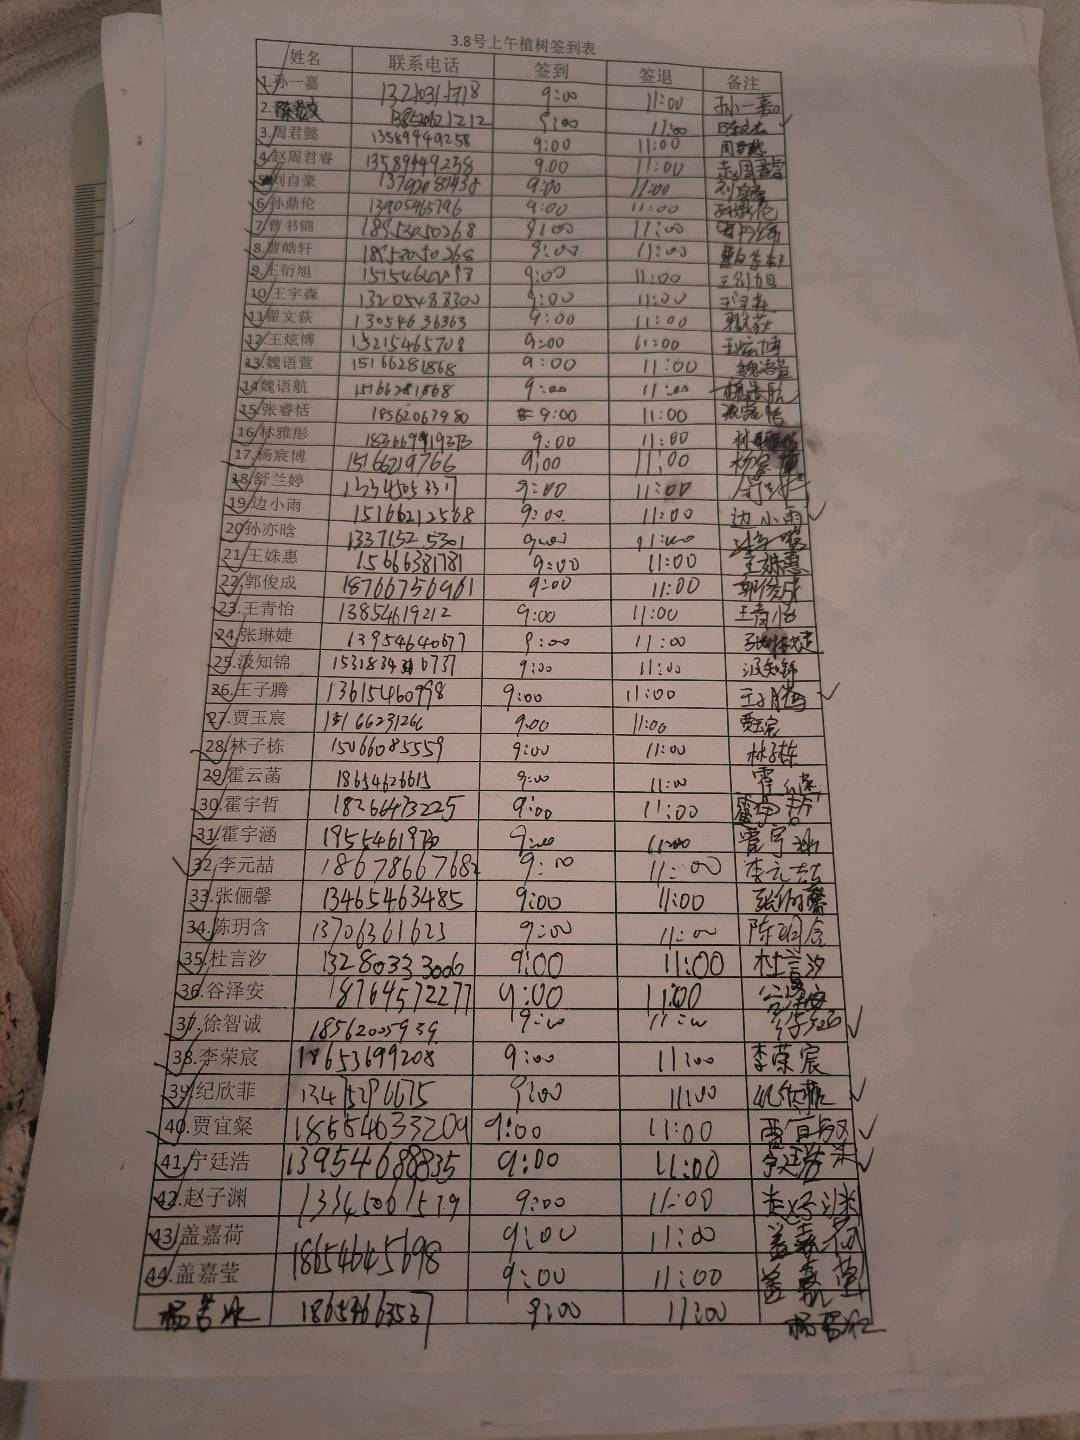 3.8号上午植树签到表
姓名 联系电话 签到 签退 备注
1.孙一嘉 9:00 11:00 孙一嘉
2. 13850621212 9:00 11:00
3.周君懿 13589449258 9:00 11:00 周君懿
4.赵周君睿 13589449258 9:00 11:00 赵周君睿
5.刘自豪 9:00 11:00 刘自豪
6.孙鼎伦 13905465796 9:00 11:00 孙鼎伦
7.曹书锦 18953050268 9:00 11:00
8.曹皓轩 18953050268 9:00 11:00
9.王衍旭 9:00 11:00 王衍旭
10.王宇森 13205488300 9:00 11:00 王宇森
11.翟文荻 13054636363 9:00 11:00 翟文荻
12.王炫博 15215465708 9:00 11:00 王炫博
13.魏语萱 15166281868 9:00 11:00 魏语萱
14.魏语航 15166281868 9:00 11:00 魏语航
15.张睿恬 18562067980 9:00 11:00 张睿恬
16.林雅彤 9:00 11:00
17.杨宸博 15166219766 9:00 11:00 杨宸博
18.舒兰婷 9:00 11:00
19.边小雨 15166212568 9:00 11:00 边小雨
20.孙亦晗 13371525301 9:00 11:00
21.王姝惠 15666381781 9:00 11:00 王姝惠
22.郭俊成 18766756961 9:00 11:00 郭俊成
23.王青怡 13854619212 9:00 11:00 王青怡
24.张琳婕 13954640677 9:00 11:00 张琳婕
25.汲知锦 9:00 11:00 汲知锦
26.王子腾 13615460998 9:00 11:00 王子腾
27.贾玉宸 15166231266 9:00 11:00 贾玉宸
28.林子栋 15066085559 9:00 11:00 林子栋
29.霍云菡 18654626615 9:00 11:00
30.霍宇哲 18266473225 9:00 11:00 霍宇哲
31.霍宇涵 9:00 11:00 霍宇涵
32.李元喆 18678667682 9:00 11:00 李元喆
33.张俪馨 13465463485 9:00 11:00 张俪馨
34.陈玥含 13706361623 9:00 11:00 陈玥含
35.杜言汐 13280333006 9:00 11:00 杜言汐
36.谷泽安 18764572277 9:00 11:00
37.徐智诚 18562005939 9:00 11:00
38.李荣宸 18653699208 9:00 11:00 李荣宸
39.纪欣菲 13475296675 9:00 11:00 纪欣菲
40.贾宜粲 18554633209 9:00 11:00 贾宜粲
41.宁廷浩 13954688835 9:00 11:00 宁廷浩
42.赵子渊 9:00 11:00 赵子渊
43.盖嘉荷 9:00 11:00 盖嘉荷
18654645698
44.盖嘉莹 9:00 11:00 盖嘉莹
杨若冰 18654663537 9:00 11:00 杨若冰